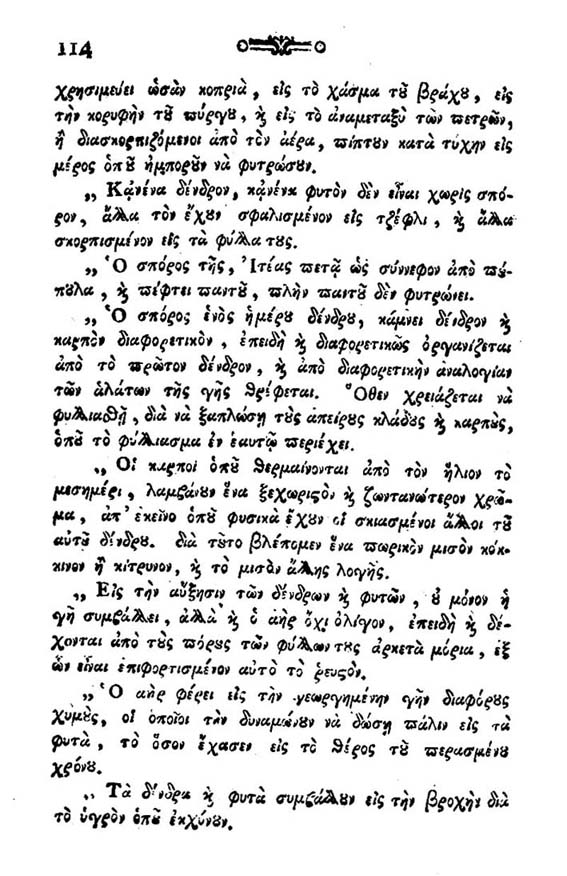 114
χρησιμεύει ὡσὰν κοπριὰ, εἰς τὸ χάσμα τȣ͂ βράχȣ, εἰς
τὴν κορυφὴν τȣ͂ πύργȣ, ϗ εἰς τὸ ἀναμεταξὺ τῶν πετρῶν,
ἢ διασκορπιζόμενοι ἀπὸ τὸν ἀέρα, πίπτȣν κατὰ τύχην εἰς
μέρος ὁπȣ͂ ἠμπορȣ͂ν νὰ φυτρώσȣν.
„ Κᾀνένα δένδρον, κᾀνένα φυτὸν δὲν εἶναι χωρὶς σπό-
ρον, ἄλλα τὸν ἔχȣν σφαλισμένον εἰς τζέφλι, ϗ ἄλλα
σκορπισμένον εἰς τὰ φύλλα τȣς.
„ Ὁ σπόρος τῆς, Ἰτέας πετᾷ ὡς σύννεφον ἀπὸ πȣ́-
πȣλα, ϗ πέφτει παντȣ͂, πλὴν παντȣ͂ δὲν φυτρώνει.
„ Ὁ σπόρος ἑνὸς ἡμέρȣ δένδρȣ, κάμνει δένδρον ϗ
καρπὸν διαφορετικὸν, ἐπειδὴ ϗ διαφορετικῶς ὀργανίζεται
ἀπὸ τὸ πρῶτον δένδρον, ϗ ἀπὸ διαφορετικὴν ἀναλογίαν
τῶν ἁλάτων τῆς γῆς θρέφεται. Ὅθεν χρειάζεται νὰ
φυλλιασθῇ, διὰ νὰ ξαπλώσῃ τȣ̀ς ἀπείρȣς κλάδȣς ϗ καρπȣ̀ς,
ὁπȣ͂ τὸ φύλλιασμα ἐν ἑαυτῷ περιέχει.
„ Οἱ καρποὶ ὁπȣ͂ θερμαίνονται ἀπὸ τὸν ἥλιον τὸ
μεσημέρι, λαμβάνȣν ἕνα ξεχωριϛὸν ϗ ζωντανώτερον χρῶ-
μα, ἀπ' ἐκεῖνο ὁπȣ͂ φυσικὰ ἔχȣν οἱ σκιασμένοι ἄλλοι τȣ͂
αὐτȣ͂ δένδρȣ. διὰ τȣ͂το βλέπομεν ἕνα πωρικὸν μισὸν κόκ-
κινον ἢ κίτρινον, ϗ τὸ μισὸν ἄλλης λογῆς.
„ Εἰς τὴν αὔξησιν τῶν δένδρων ϗ φυτῶν, ȣ̓ μόνον ἡ
γῆ συμβάλλει, ἀλλὰ ϗ ὁ ἀὴρ ὄχι ὀλίγον, ἐπειδὴ ϗ δέ-
χονται ἀπὸ τȣ̀ς πόρȣς τῶν φύλλων τȣς ἀρκετὰ μόρια, ἐξ
ὧν εἶναι ἐπιφορτισμένον αὐτὸ τὸ ῥευϛὸν.
„ Ὁ ἀὴρ φέρει εἰς τὴν γεωργημένην γῆν διαφόρȣς
χυμȣ̀ς, οἱ ὁποῖοι τὴν δυναμώνȣν νὰ δώσῃ πάλιν εἰς τὰ
φυτὰ, τὸ ὅσον ἔχασεν εἰς τὸ θέρος τȣ͂ περασμένȣ
χρόνȣ.
„ Τὰ δένδρα ϗ φυτὰ συμβάλλȣν εἰς τὴν βροχὴν διὰ
τὸ ὑγρὸν ὁπȣ͂ ἐκχύνȣν.